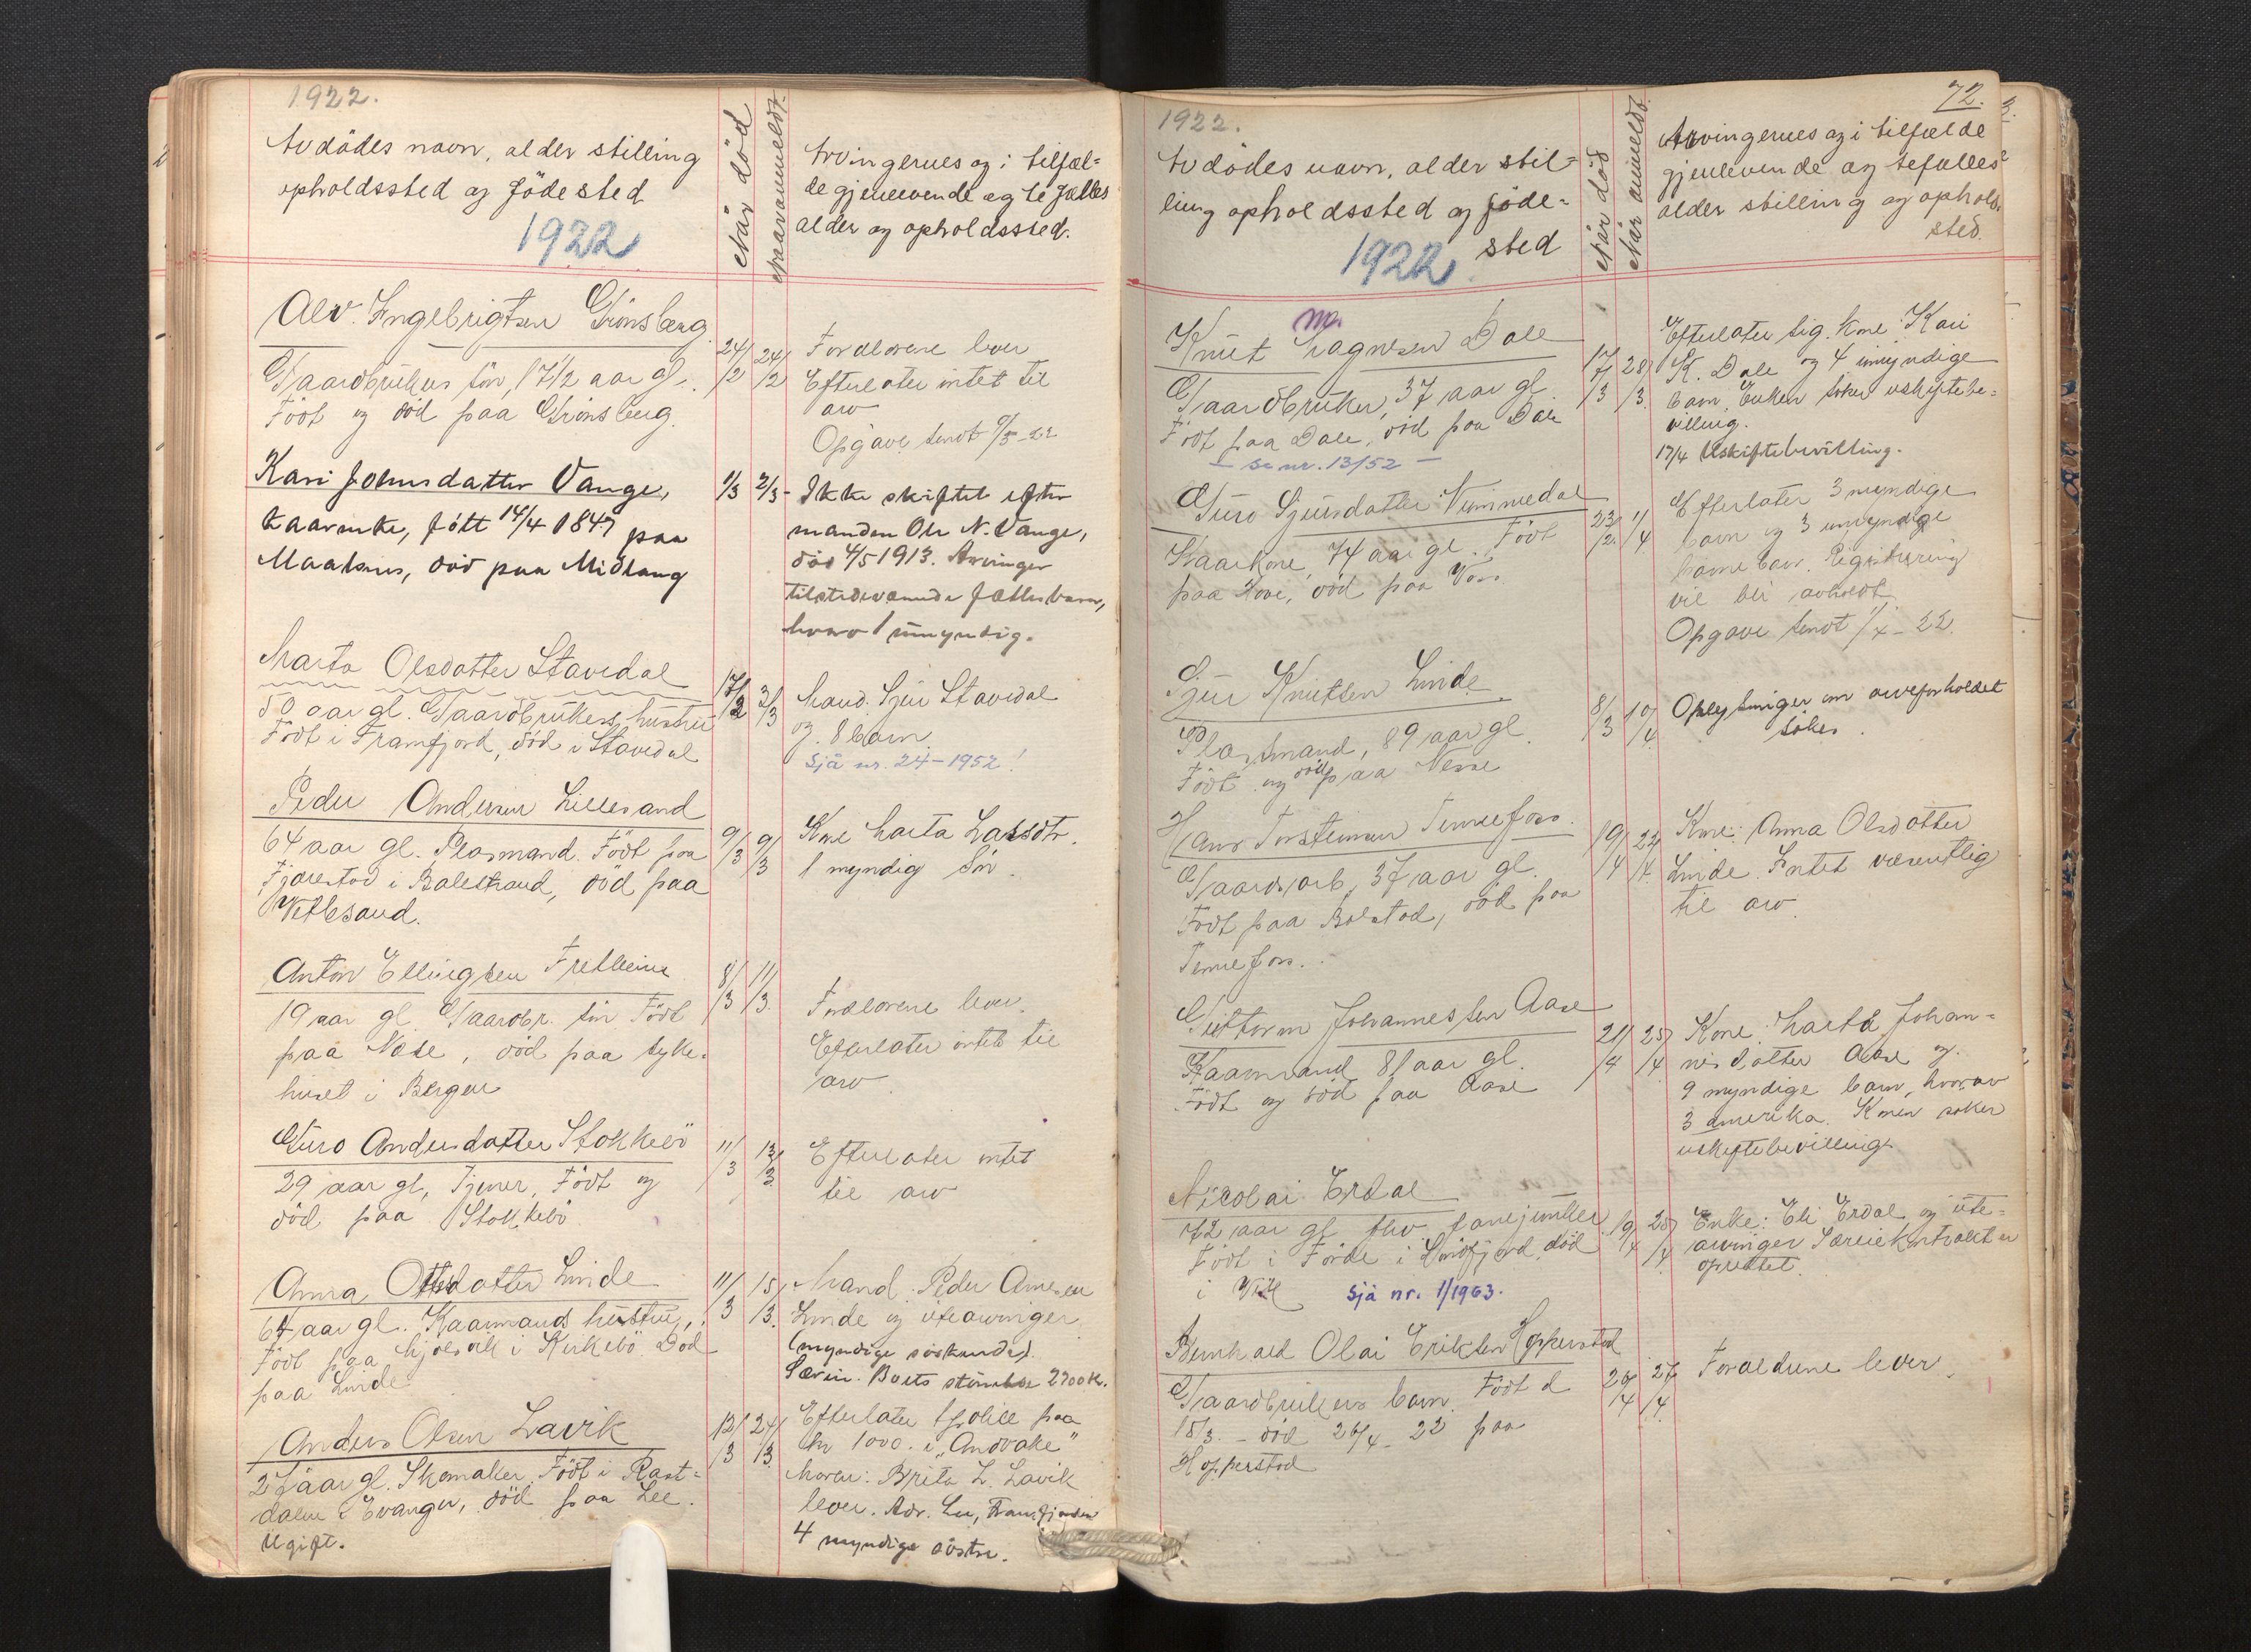 1922.
Avdødes navn, alder stilling
opholdssted og födested
1922
Når död
Naar anmeldt.
Arvingernes og i tilfæl=
de gjenlevende egtefælles
alder og opholdssted.
Alv. Ingebrigtsen Grönsberg
Gaardbrukers sön, 17 1/2 aar gl.
Födt og död paa Grönsberg.
24/2 24/2
Forældrene lever
Efterlater intet til
arv
Opgave sendt /5-22
Kari Johnsdatter Vange,
kaarenke, fött 14/4 1847 paa
död paa Midlang
1/3 2/3
Ikke skiftet efter
manden Ole N. Vange,
död 4/5 1913. Arvinger
tilstedeværende fælles barn,
hvorav 1 umyndig.
Marta Olsdatter Stavedal
50 aar gl. Gaardbrukers hustru
Födt i Framfjord, död i Stavedal
17/2 3/3
Mand. Sjur Stavedal
og 8 barn
Sjå nr. 24-1952!
Peder Andersen Lillesand
64 aar gl. Plasmand. Födt paa
Fjærestad i Balestrand, död paa
Vetlesand.
9/3 9/3
Kone Marta Lassdtr.
1 myndig sön.
Anton Ellingsen Fretheim
19 aar gl. Gaardbr. sön Födt
paa Nese, död paa syke=
huset i Bergen
8/3 11/3
Forældrene lever.
Efterlater intet til
arv
Guro Andersdatter Stokkebö
29 aar gl, Tjener, Födt og
död paa Stokkebö
11/3 13/3
Efterlater intet
til arv
Anna Ottesdatter Linde
64 aar gl. Kaarmands hustru,
Födt paa Hjelsvik i Kirkebö. Död
paa Linde
11/3 15/3
Mand: Peder Arnesen
Linde og utearvinger
(myndige söskende).
Særeie. Boets störrelse 2700 kr.
Anders Olsen Lavik
27 aar gl. Skomaker. Födt i Rast=
dalen i Evanger, död paa Lee.
Ugift.
12/3 24/3
Efterlater 1 police paa
kr 1000. i "Andvake"
Moren: Brita L. Lavik
lever. Adr. Lee, Framfjorden
4 myndige söstre.
72.
1922.
Avdödes navn, alder stil=
ling opholdssted og föde=
sted
1922
Når död
Når anmeldt.
Arvingernes og i tilfælde
gjenlevende egtefælles
alder stilling og opholds=
sted.
Knut Magnesen Dale
Gaardbruker, 37 aar gl.
Födt paa Dale, död paa Dale
- se nr. 13/52 -
17/3 28/3
Efterlater sig. kone: Kari
K. Dale og 4 umyndige
barn. Enken söker uskiftebe=
villing.
17/4 Uskiftebevilling.
Guro Sjursdatter Nummedal
Kaarkone, 74 aar gl. Födt
paa Hove, död paa Voss.
23/2. 1/4
Efterlater 3 myndige
barn og 3 umyndige
barnebarn. Registrering
vil bli avholdt.
Opgave sendt 1/x-22.
Sjur Knutsen Linde
Plassmand, 89 aar gl.
Födt og död paa Nesse
8/3 10/4
Oplysninger om arveforholdet
sökes.
Hans Torsteinsen Tennefoss.
Gaardsarb, 37 aar gl.
Födt paa Bolstad, död paa
Tennefoss.
19/4 22/4.
Kone: Anna Olsdatter
Linde. Intet væsentlig
til arv.
Guttorm Johannessen Aase
Kaarmand 81 aar gl.
Födt og död paa Aase
21/4 25/4
Kone: Marta Johan=
nesdatter Aase og
9 myndige barn, hvorav
3 amerika. Konen söker
uskiftebevilling.
Nicolai Erdal
72 aar gl fhv. fanejunker
Födt i Förde i Söndfjord, död
i Vik Sjå nr. 1/1963.
19/4 25/4
Enke: Eli Erdal og ute=
arvinger Særeiekontrakt er
oprettet.
Bernhard Olai Eriksen Hopperstad
Gaardbrukers barn. Födt d
15/3. - död 26/4-22 paa
Hopperstad
26/4 27/4.
Forældrene lever.